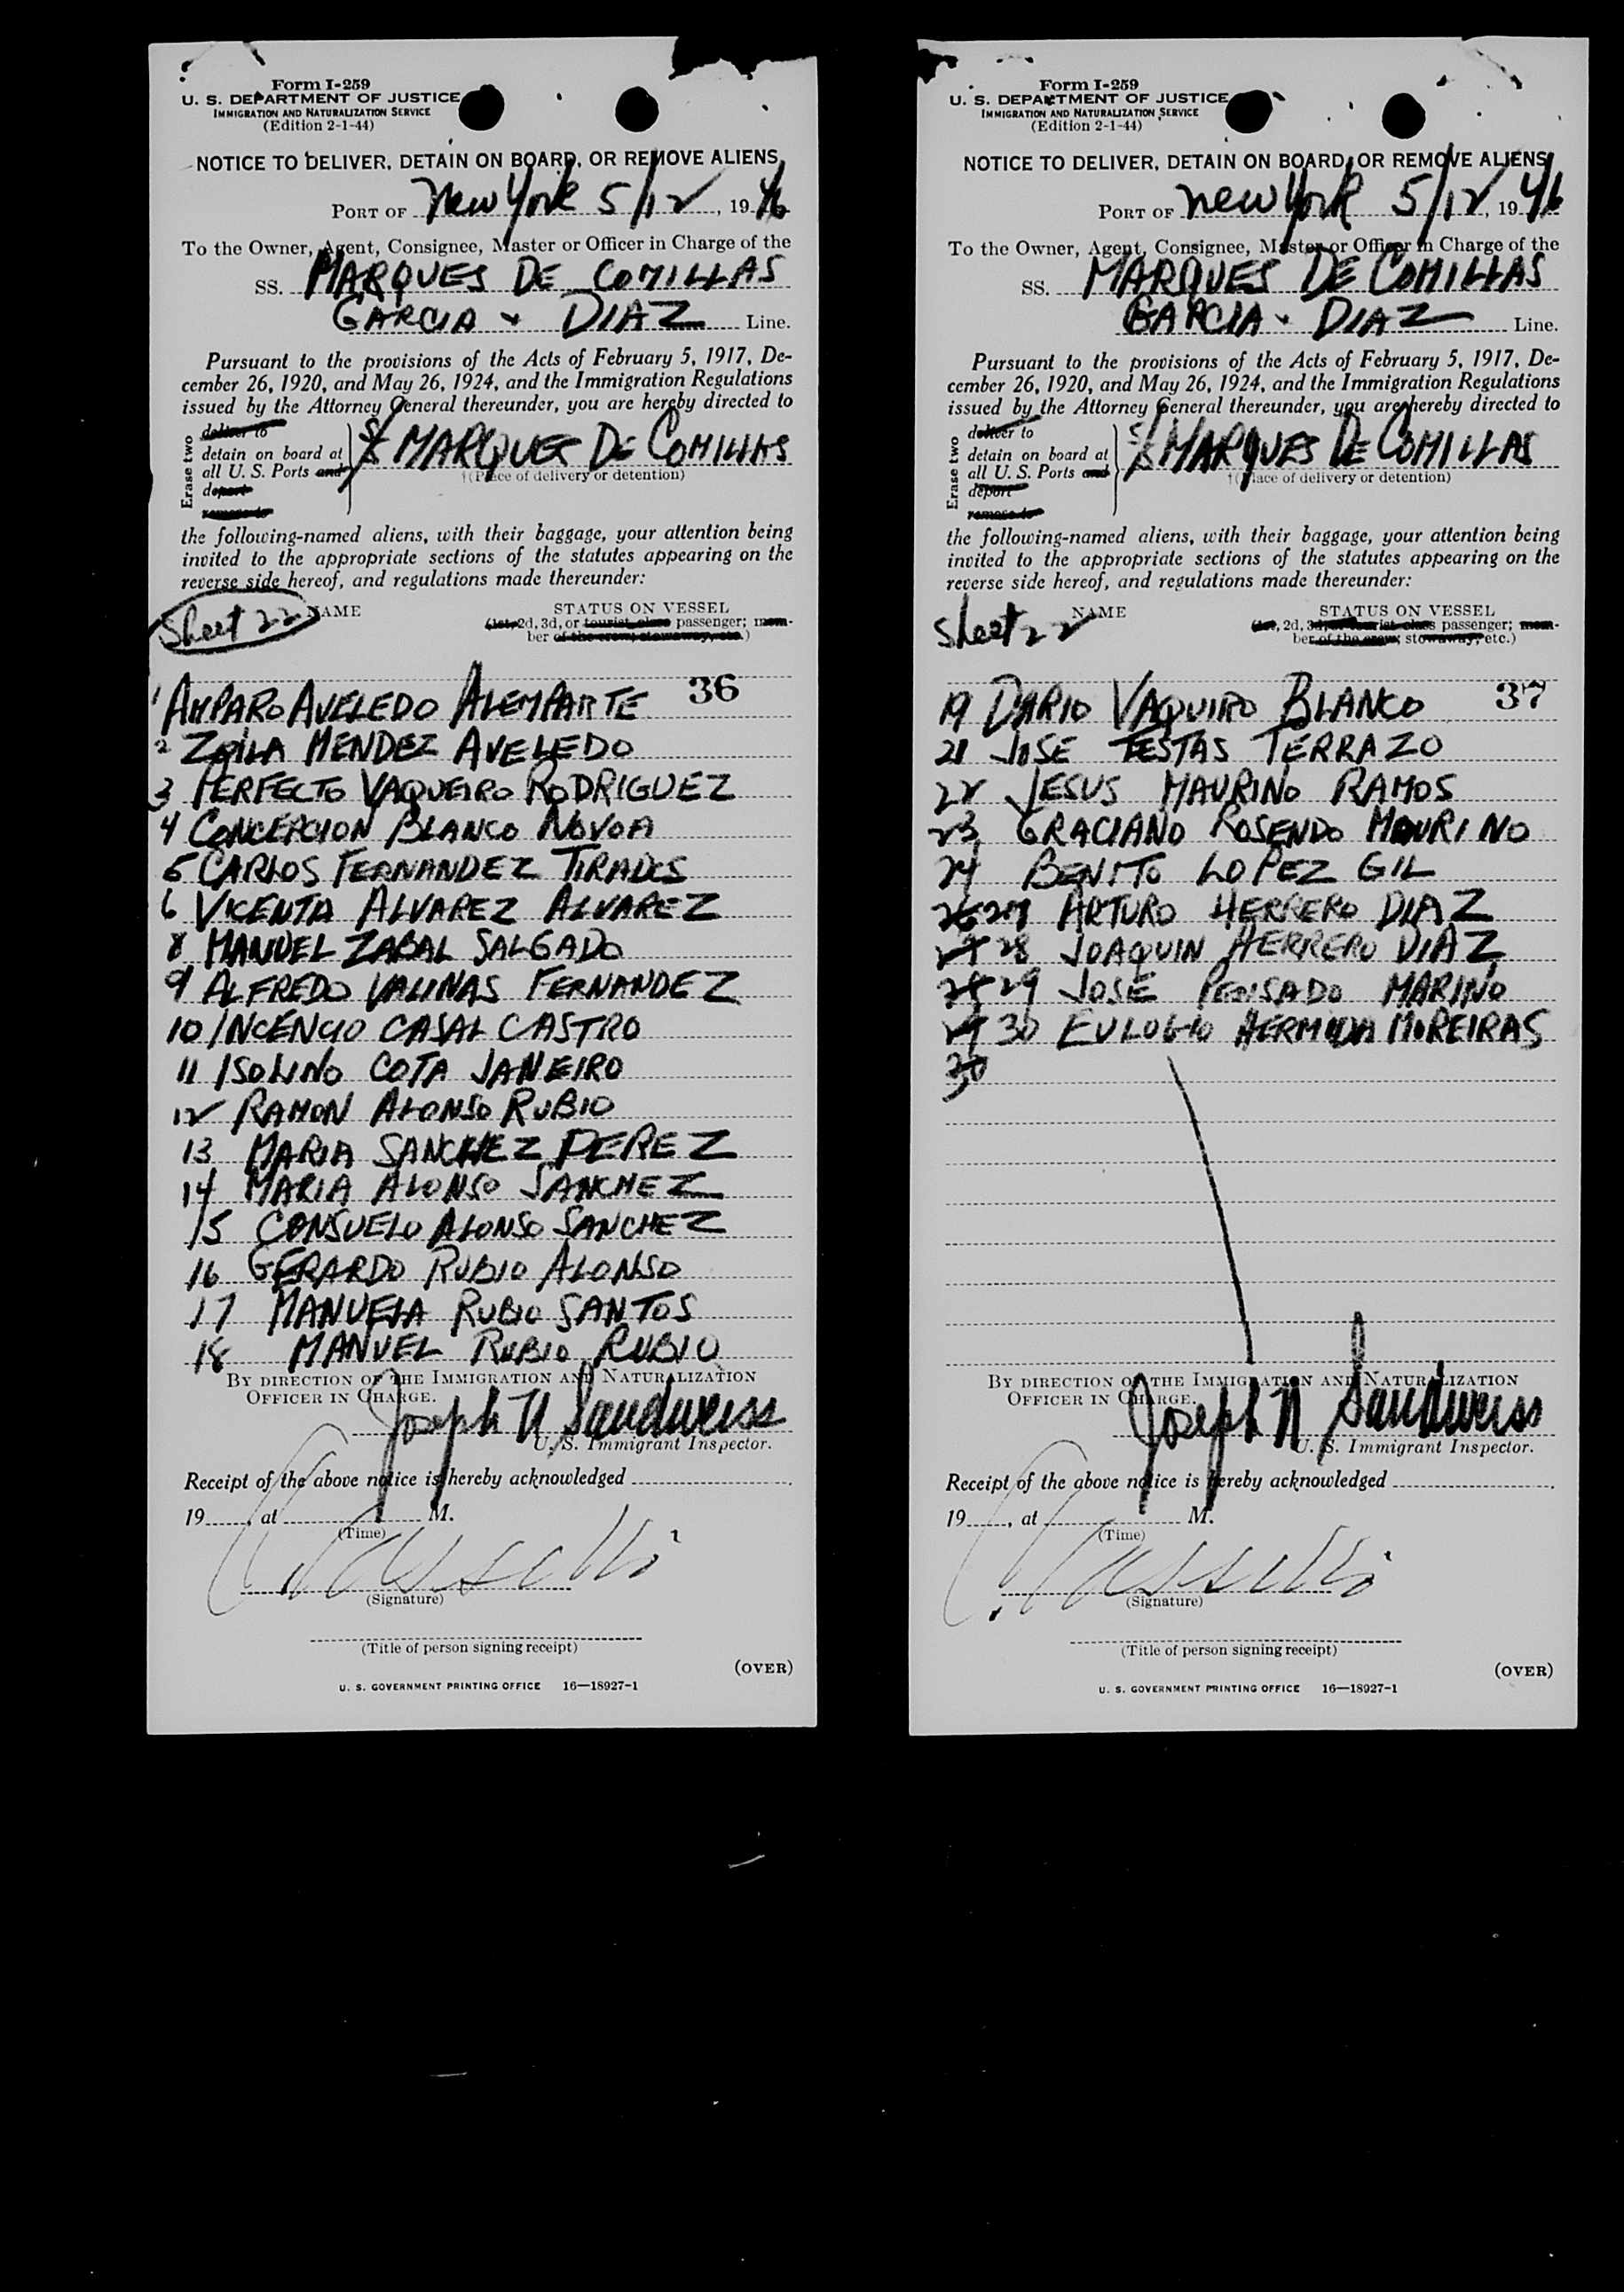 Form I-259
U. S. DEPARTMENT OF JUSTICE
IMMIGRATION AND NATURALIZATION SERVICE
(Edition 2-1-44)
NOTICE TO DELIVER, DETAIN ON BOARD, OR REMOVE ALIENS
PORT OF New York 5/12, 1946
To the Owner, Agent, Consignee, Master or Officer in Charge of the
SS. MARQUES DE COMILLAS
GARCIA & DIAZ Line.
Pursuant to the provisions of the Acts of February 5, 1917, De-
cember 26, 1920, and May 26, 1924, and the Immigration Regulations
issued by the Attorney General thereunder, you are hereby directed to
Erase two
deliver to
detain on board at
all U. S. Ports and
depart
remove to
S/S MARQUES DE COMILLAS
†(Place of delivery or detention)
the following-named aliens, with their baggage, your attention being
invited to the appropriate sections of the statutes appearing on the
reverse side hereof, and regulations made thereunder:
Sheet 22
NAME
STATUS ON VESSEL
(1st, 2d, 3d, or tourist class passenger; mem-
ber of the crew; stowaway, etc.)
36
1 AMPARO AVELEDO ALEMPARTE
2 ZOILA MENDEZ AVELEDO
3 PERFECTO VAQUEIRO RODRIGUEZ
4 CONCEPCION BLANCO NOVOA
5 CARLOS FERNANDEZ TIRADOS
6 VICENTA ALVAREZ ALVAREZ
8 MANUEL ZABAL SALGADO
9 ALFREDO VALINAS FERNANDEZ
10 INCENCIO CASAL CASTRO
11 ISOLINO COTA JANEIRO
12 RAMON ALONSO RUBIO
13 MARIA SANCHEZ PEREZ
14 MARIA ALONSO SANCHEZ
15 CONSUELO ALONSO SANCHEZ
16 GERARDO RUBIO ALONSO
17 MANUELA RUBIO SANTOS
18 MANUEL RUBIO RUBIO
BY DIRECTION OF THE IMMIGRATION AND NATURALIZATION
OFFICER IN CHARGE.
Joseph N Sandweiss
U. S. Immigrant Inspector.
Receipt of the above notice is hereby acknowledged
19 , at M.
(Time)
(Signature)
(Title of person signing receipt)
(OVER)
U. S. GOVERNMENT PRINTING OFFICE 16—18927-1
Form I-259
U. S. DEPARTMENT OF JUSTICE
IMMIGRATION AND NATURALIZATION SERVICE
(Edition 2-1-44)
NOTICE TO DELIVER, DETAIN ON BOARD, OR REMOVE ALIENS
PORT OF New York 5/12, 1946
To the Owner, Agent, Consignee, Master or Officer in Charge of the
SS. MARQUES DE COMILLAS
GARCIA & DIAZ Line.
Pursuant to the provisions of the Acts of February 5, 1917, De-
cember 26, 1920, and May 26, 1924, and the Immigration Regulations
issued by the Attorney General thereunder, you are hereby directed to
Erase two
deliver to
detain on board at
all U. S. Ports and
deport
remove to
S/S MARQUES DE COMILLAS
†(Place of delivery or detention)
the following-named aliens, with their baggage, your attention being
invited to the appropriate sections of the statutes appearing on the
reverse side hereof, and regulations made thereunder:
Sheet 22
NAME
STATUS ON VESSEL
(1st, 2d, 3d, or tourist class passenger; mem-
ber of the crew; stowaway, etc.)
37
19 DARIO VAQUIRO BLANCO
21 JOSE TESTAS TERRAZO
22 JESUS MAURINO RAMOS
23 GRACIANO ROSENDO MOURINO
24 BENITO LOPEZ GIL
26 27 ARTURO HERRERO DIAZ
27 28 JOAQUIN HERRERO DIAZ
28 29 JOSE PENSADO MARINO
29 30 EULOGIO HERMIDA MOREIRAS
30
BY DIRECTION OF THE IMMIGRATION AND NATURALIZATION
OFFICER IN CHARGE.
Joseph N Sandweiss
U. S. Immigrant Inspector.
Receipt of the above notice is hereby acknowledged
19 , at M.
(Time)
(Signature)
(Title of person signing receipt)
(OVER)
U. S. GOVERNMENT PRINTING OFFICE 16—18927-1